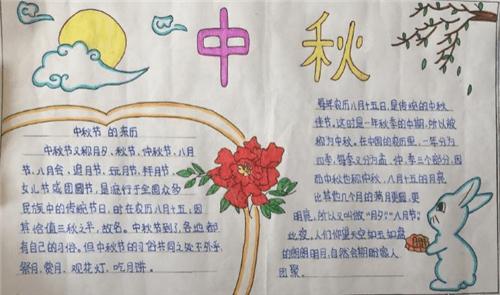 中秋
中秋节 的来历
中秋节又称月夕、秋节、仲秋节、八月
节、八月会、追月节、玩月节、拜月节、
女儿节或团圆节,是流行于全国众多
民族中的传统节日,时在农历八月十五;因
其恰值三秋之半,故名。中秋节到了各地都
有自己的习俗。但中秋节的习俗共同之处不外乎,
祭月、赏月、观花灯、吃月饼。
每年农历八月十五日,是传统的中秋
佳节。这时是一年秋季的中期,所以被
称为中秋。在中国的农历里,一年分为
四季,每季又分为孟、仲、季三个部分,因
而中秋也称仲秋。八月十五的月亮
比其他几个月的满月更圆,更
明亮,所以又叫做"月夕""八月节"。
此夜,人们仰望天空如玉如盘
的朗朗明月,自然会期盼家人
团聚。